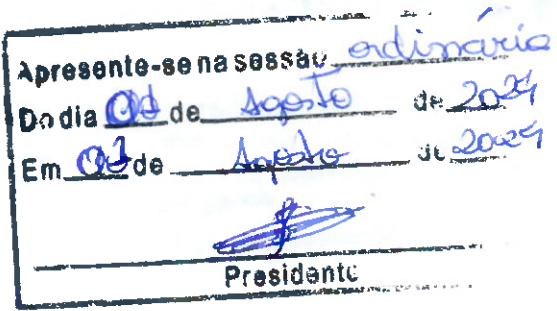 Apresente-se na sessão ordinária
Do dia de Agosto de 2024
Em de Agosto de 2024
Presidente